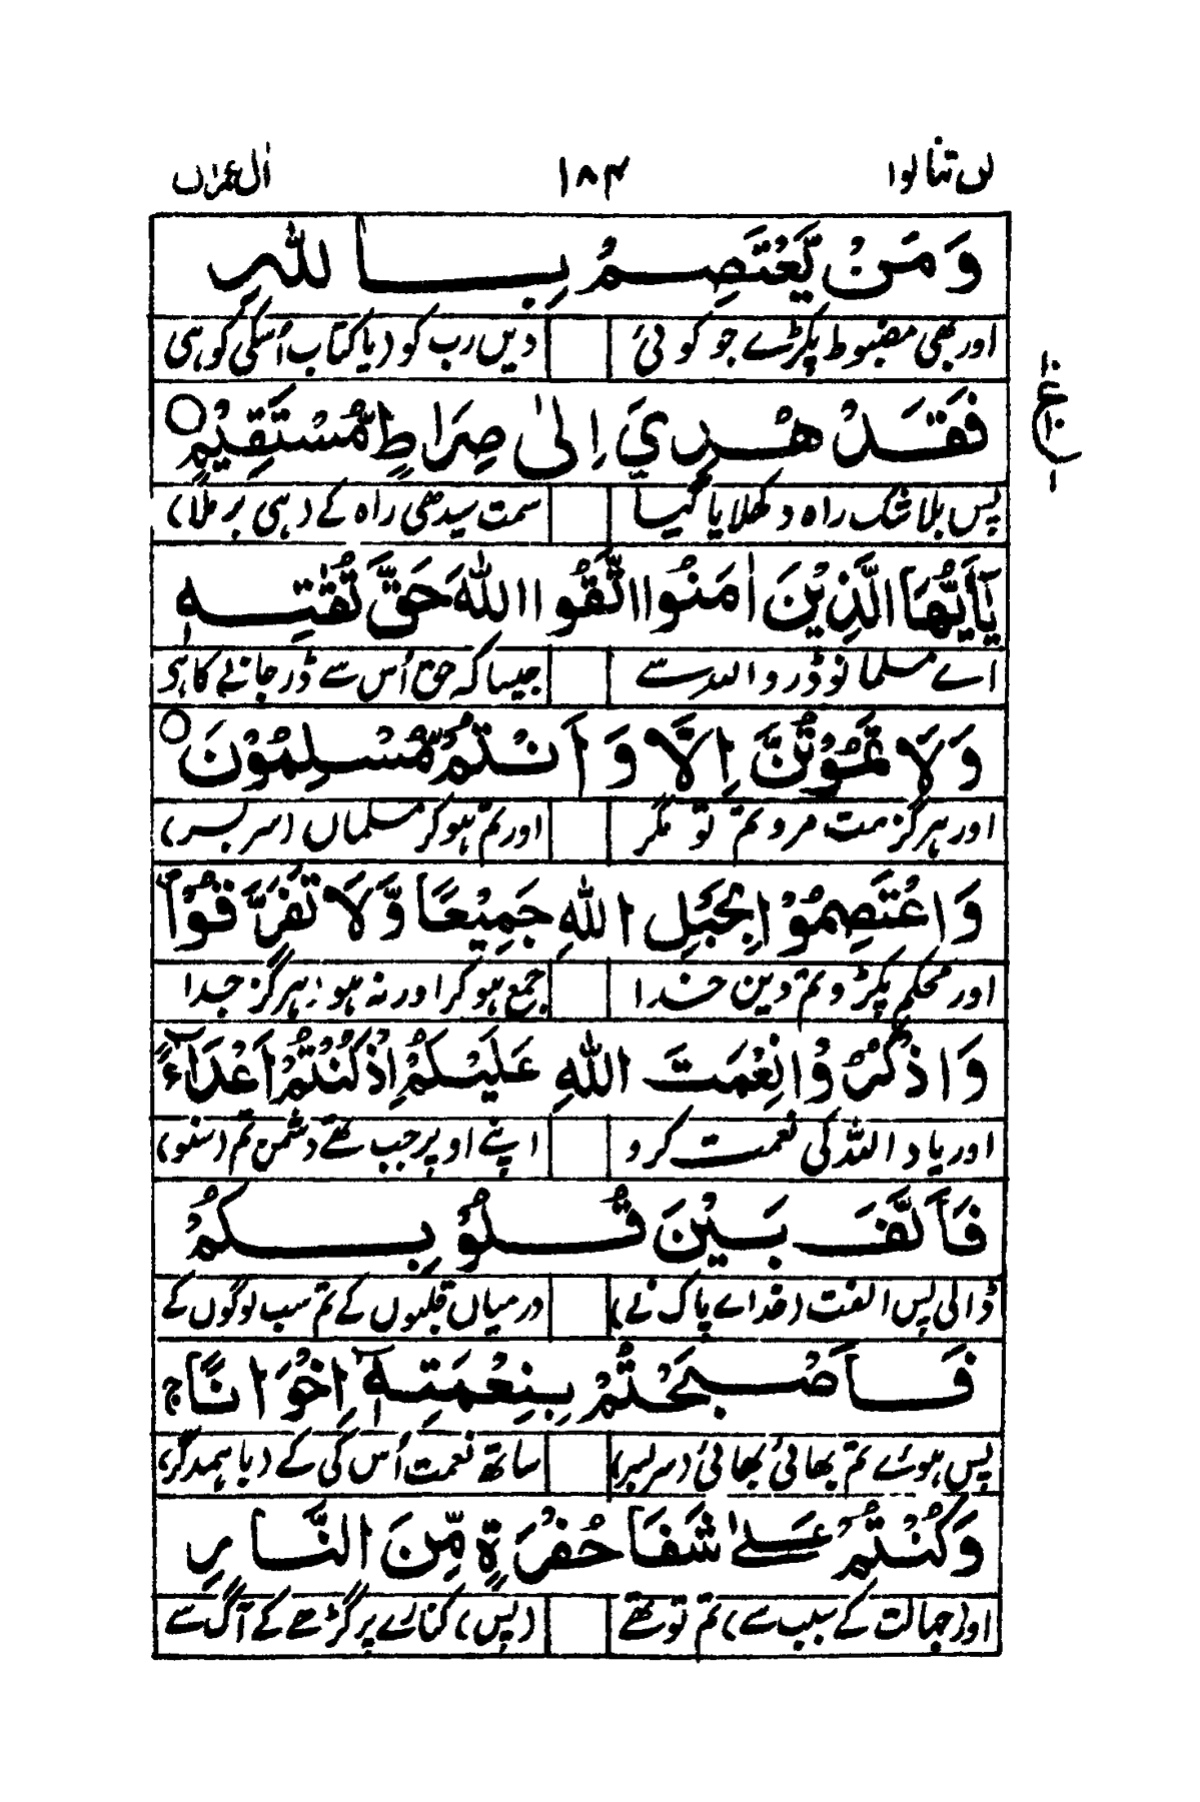 لن تنالوا ۱۸۴ اٰل عمرٰن
وَ مَنْ يَّعْتَصِمْ بِاللّٰهِ
اور بھی مضبوط پکڑے جو کوئی دین رب کو (یا کتاب اُسکی کو ہی
فَقَدْ هُدِيَ اِلٰى صِرَاطٍ مُّسْتَقِيْمٍ ○
پس بلا شک راہ دکھلایا گیا سمت سیدھی راہ کے (ہی برملا)
يٰۤاَيُّهَا الَّذِيْنَ اٰمَنُوا اتَّقُوا اللّٰهَ حَقَّ تُقٰتِهٖ
اے مسلمانو ڈرو اللہ سے جیسا کہ حق اُس سے ڈر جانے کا ہی
وَلَا تَمُوْتُنَّ اِلَّا وَ اَنْتُمْ مُّسْلِمُوْنَ ○
اور ہرگز مت مرو تم تو مگر اور تم ہوکر مسلماں (سربسر)
وَ اعْتَصِمُوْا بِحَبْلِ اللّٰهِ جَمِيْعًا وَّ لَا تَفَرَّقُوْا ۠
اور محکم پکڑو تم دین خدا جمع ہوکر اور نہ ہو ہرگز جدا
وَ اذْكُرُوْا نِعْمَتَ اللّٰهِ عَلَيْكُمْ اِذْ كُنْتُمْ اَعْدَآءً
اور یاد اللہ کی نعمت کرو اپنے اوپر جب تھے دشمن تم (سنو)
فَاَلَّفَ بَيْنَ قُلُوْبِكُمْ
ڈالی پس الفت (خداے پاک نے) درمیاں قلبوں کے تم سب لوگوں کے
فَاَصْبَحْتُمْ بِنِعْمَتِهٖۤ اِخْوَانًا ۚ
پس ہوئے تم بھائی بھائی (سربسر) ساتھ نعمت اُس کی کے (باہمدگر)
وَكُنْتُمْ عَلٰى شَفَا حُفْرَةٍ مِّنَ النَّارِ
اور (جہالت کے سبب سے) تم تو تھے (پس) کنارے پر گڑھے کے آگ سے